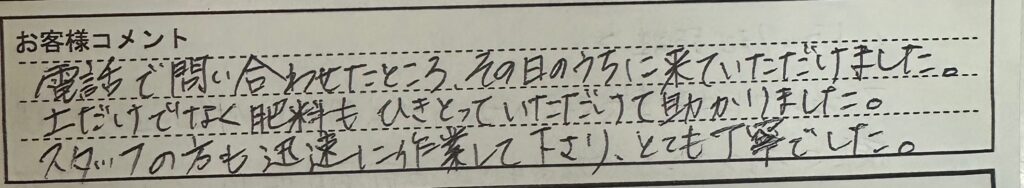 お客様コメント
電話で問い合わせたところ、その日のうちに来ていただけました。
土だけでなく肥料もひきとっていただけて助かりました。
スタッフの方も迅速に作業して下さり、とても丁寧でした。